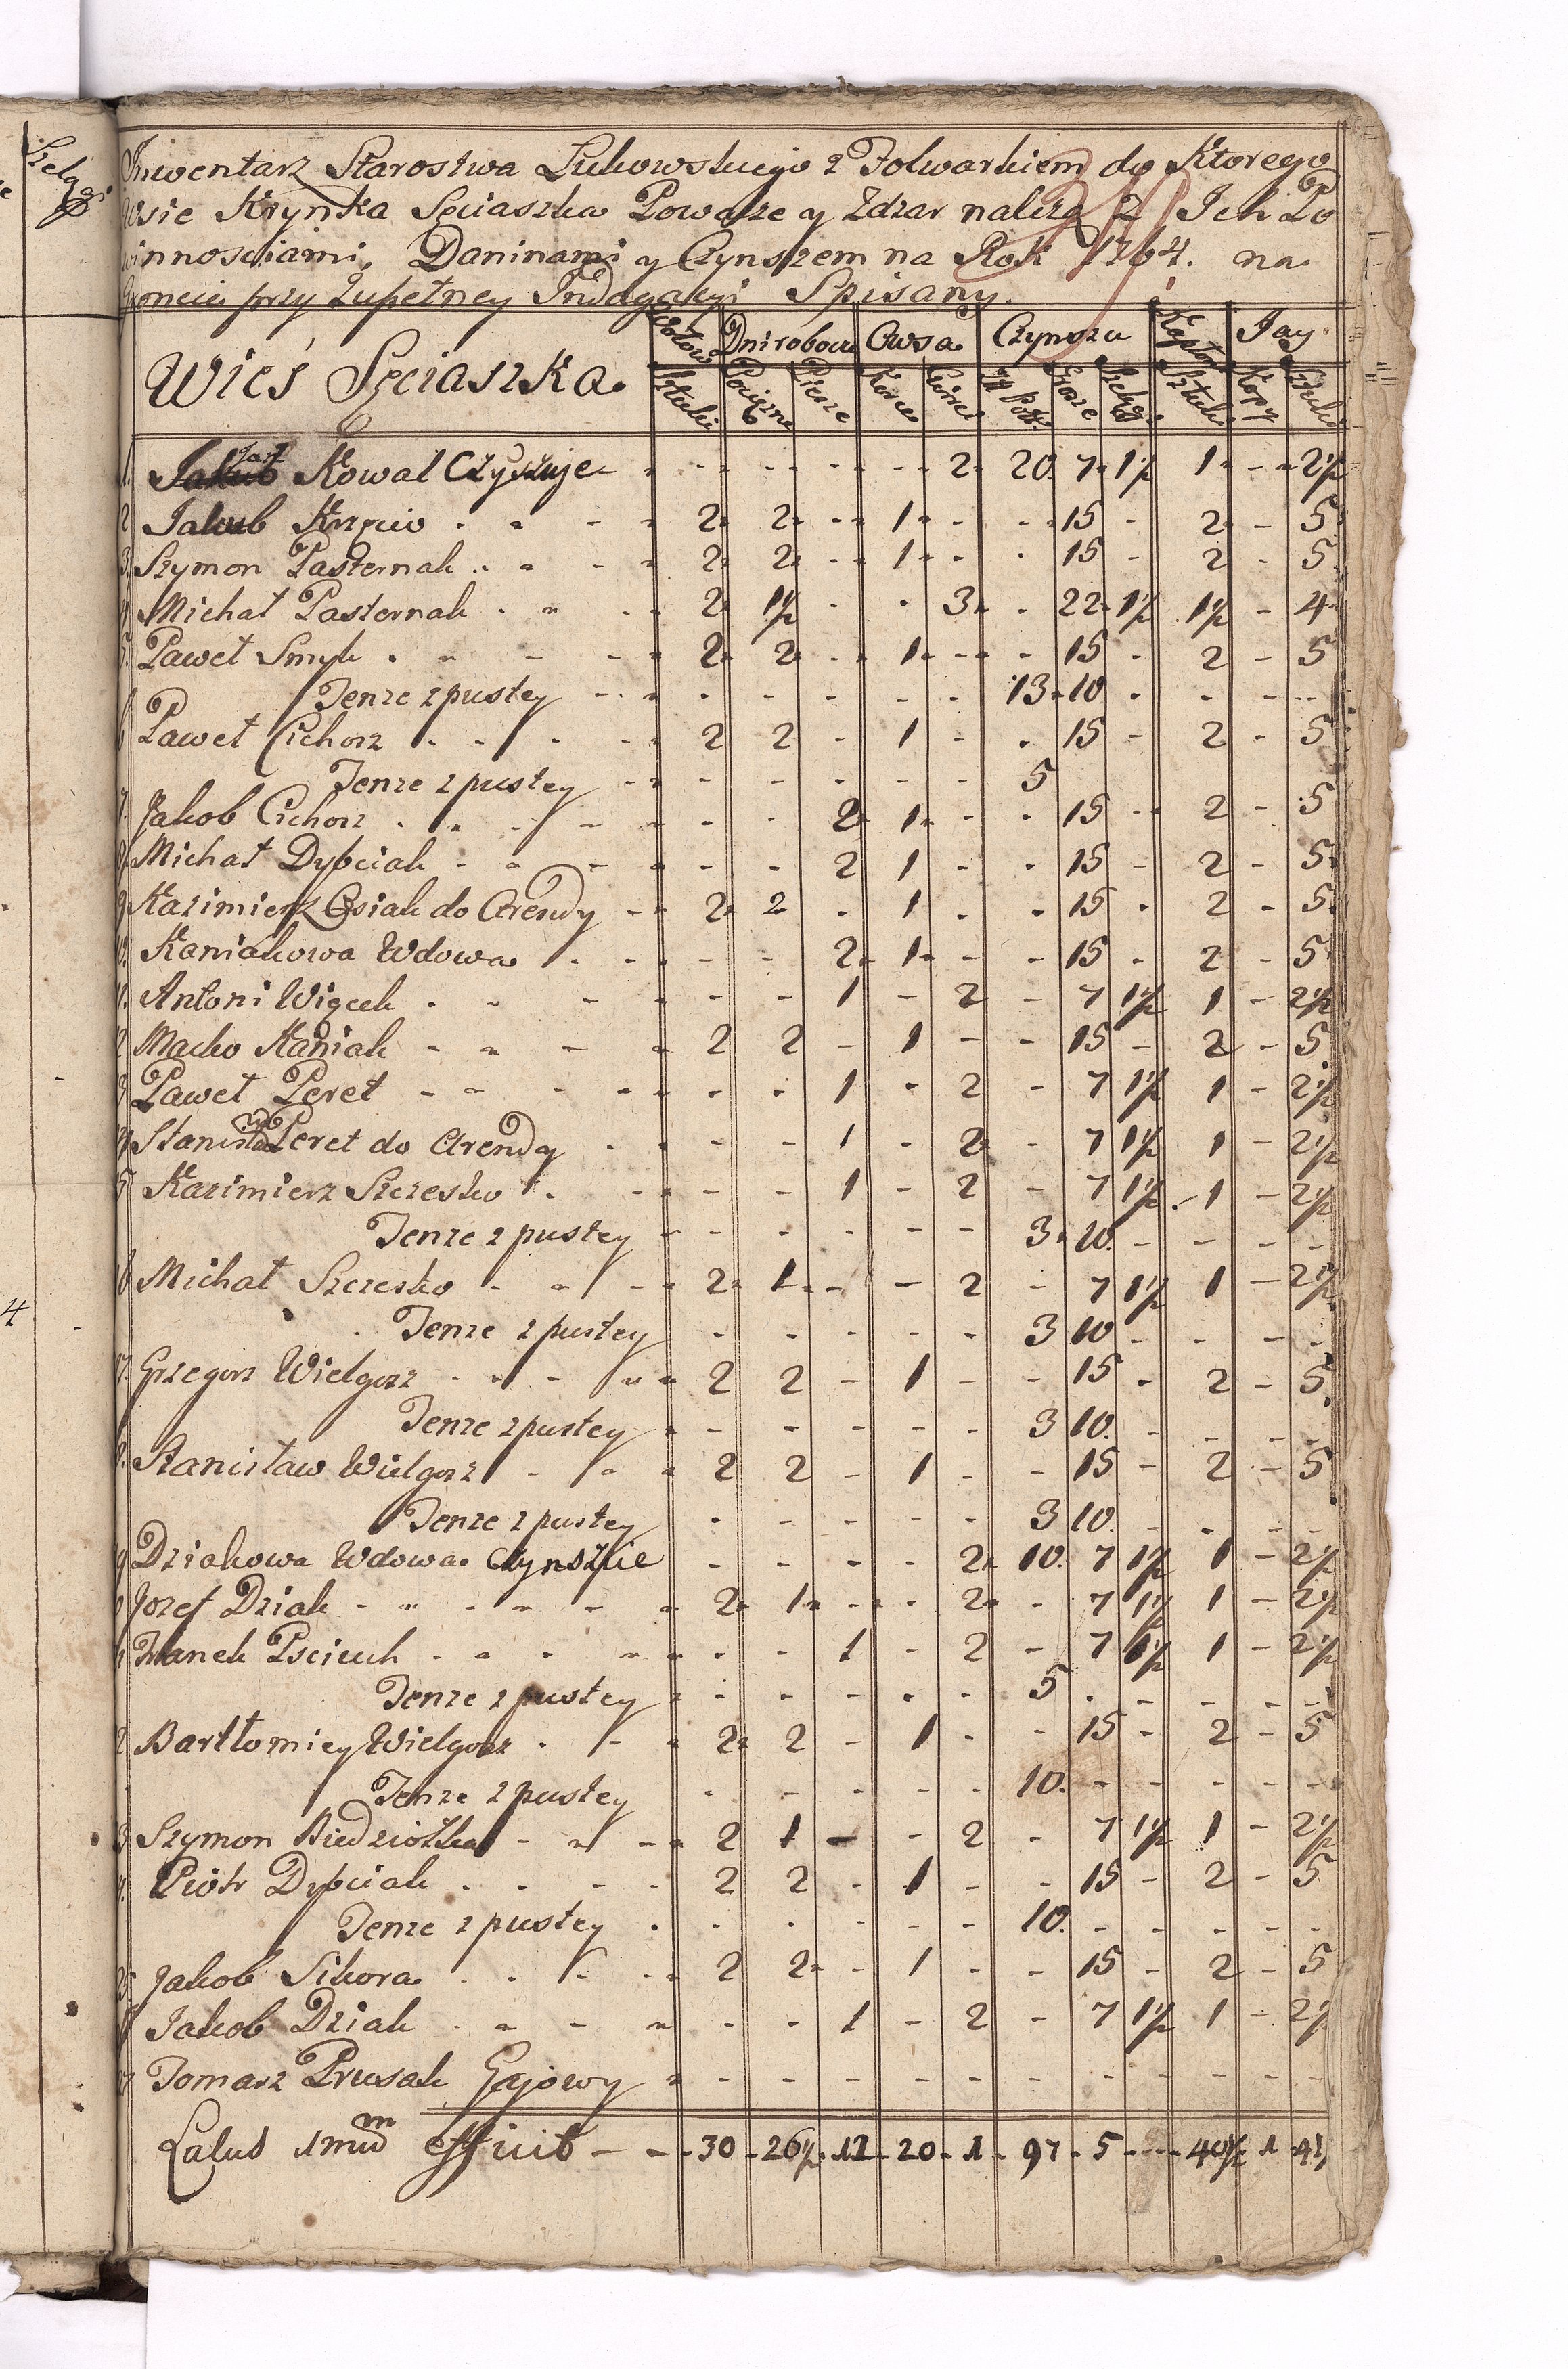 Inwentarz Starostwa Łukowskiego z Folwarkiem do Ktorego
Wsie Krynka Sęciaszka Poważe y Zdzar należą Z Ich Po
winnosciami, Daninami y Czynszem na Rok 1764. na
Gruncie przy Zupełney Indagacyi Spisany.
Wieś Sęciaszka.
Wołow Dni robocze Owsa Czynszu Kapłon Jay
Sztuki Pociężne Piesze Korce Garce Zł Pol: Grosze Szelągi Sztuki Kopy Sztuki
1. Jan Kowal Czyszuje - - - - - 2 20. 7 1½ 1 - 2½
2 Jakub Krzpio 2 2 - 1 - - 15 - 2 - 5
3. Szymon Pasternak 2 2 - 1 - - 15 - 2 - 5
4 Michał Pasternak 2 1½ - - 3 - 22 1½ 1½ - 4
5. Paweł Smyk 2 2 - 1 - - 15 - 2 - 5
Tenze z pustey - - - - - 13 10 - - - -
6 Paweł Cichosz 2 2 - 1 - - 15 - 2 - 5
Tenze z pustey - - - - - 5
7. Jakob Cichosz - - 2 1 - - 15 - 2 - 5
8 Michał Dybciak - - 2 1 - - 15 - 2 - 5
9 Kazimierz Osiak do Arendy 2 2 - 1 - - 15 - 2 - 5
0. Kaniakowa Wdowa - - 2 1 - - 15 - 2 - 5
1. Antoni Więcek - - 1 - 2 - 7 1½ 1 - 2½
2 Maćko Kaniak 2 2 - 1 - - 15 - 2 - 5
3 Paweł Peret - - 1 - 2 - 7 1½ 1 - 2½
4 Stanisław Peret do Arendy - - 1 - 2 - 7 1½ 1 - 2½
5 Kazimierz Szczesko - - 1 - 2 - 7 1½ 1 - 2½
Tenze z pustey - - - - - 3 10. - - - -
6 Michał Szczesko 2 1 - - 2 - 7 1½ 1 - 2½
Tenze z pustey - - - - - 3 10 - - - -
17. Grzegorz Wielgosz 2 2 - 1 - - 15 - 2 - 5
Tenze z pustey - - - - - 3 10. - - - -
8. Stanisław Wielgosz 2 2 - 1 - - 15 - 2 - 5
Tenze z pustey - - - - - 3 10. - - - -
9 Dziakowa Wdowa Czynszuie - - - - 2 10. 7 1½ 1 - 2½
0 Jozef Dziak 2 1 - - 2 - 7 1½ 1 - 2½
1 Iwanek Psciuch - - 1 - 2 - 7 1½ 1 - 2½
Tenze z pustey - - - - - 5 - - - - -
2 Bartłomiey Wielgosz 2 2 1 - - 15 - 2 - 5
Tenze z pustey - - - - - 10. - - - - -
3 Szymon Biedziołka 2 1 - - 2 - 7 1½ 1 - 2½
4. Piotr Dybciak 2 2 - 1 - - 15 - 2 - 5
Tenze z pustey - - - - - 10. - - - - -
25 Jakob Sikora 2 2 - 1 - - 15 - 2 - 5
6 Jakob Dziak - - 1 - 2 - 7 1½ 1 - 2½
27 Tomasz Prusak Gajowy - - - - - - - - - - -
Latus 1mum efficit - - 30 26½ 12 20 1 97 5 - 40½ 1 41